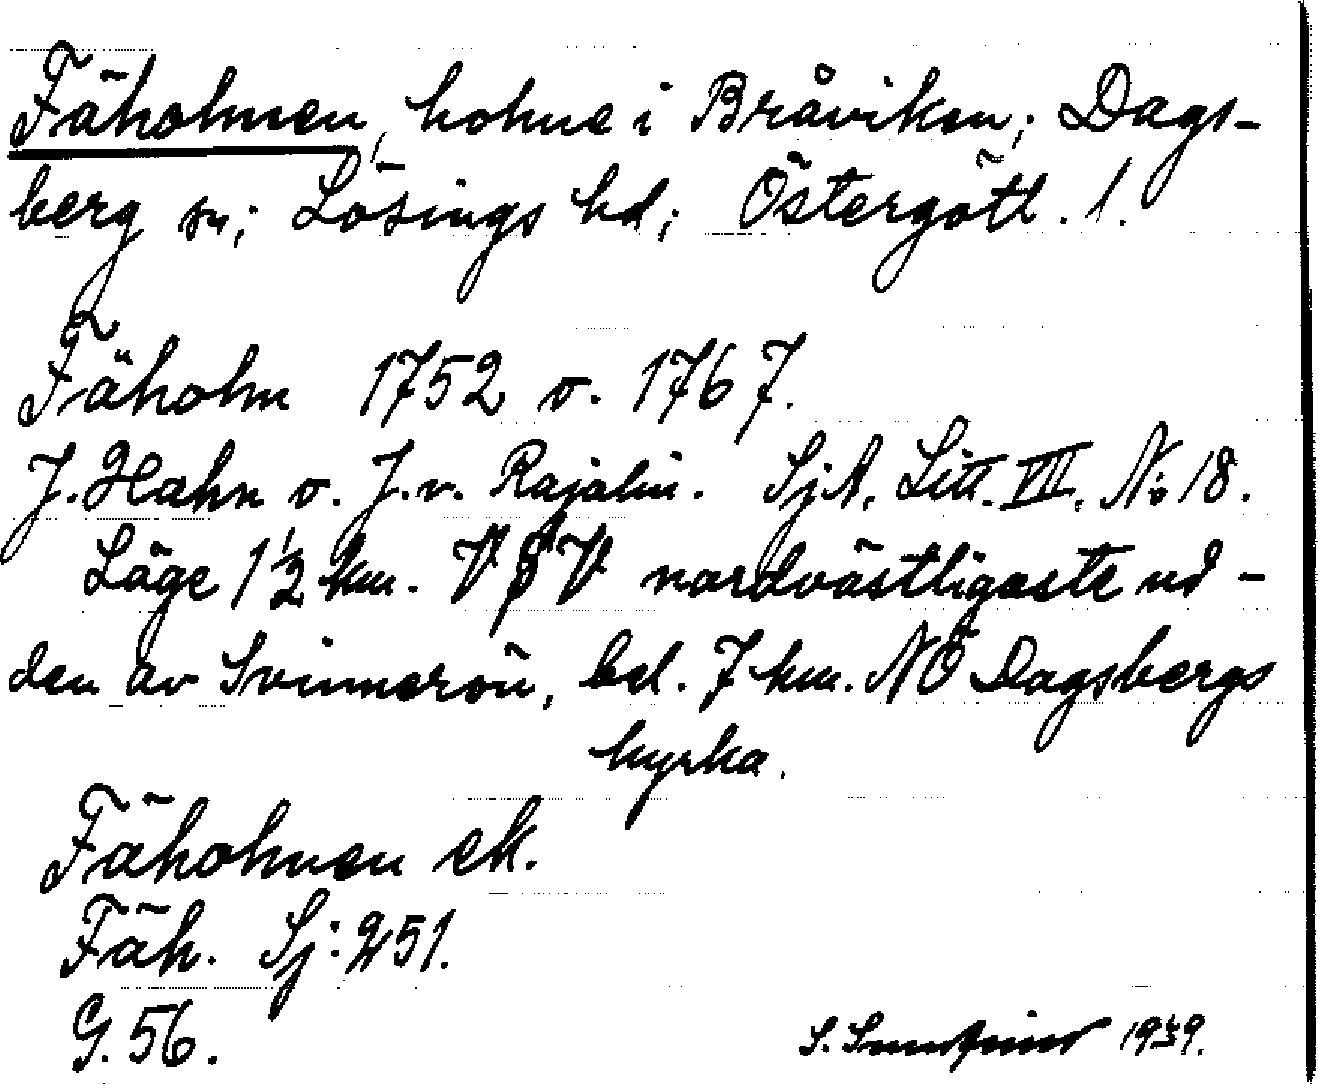 Fäholmen, holme i Bråviken; Dags-
berg sn; Lösings hd; Östergötl. l.
Fäholm 1752 o. 1767.
J. Hahn o. J. v. Rajalin. SjA. Litt. VII. No 18.
Läge 1 1/2 km. VSV nordvästligaste ud-
den av Svinnerön, bel. 7 km. NÖ Dagsbergs
kyrka.
Fäholmen ek.
Fäh. Sj: 251.
G. 56.
S. 1939.